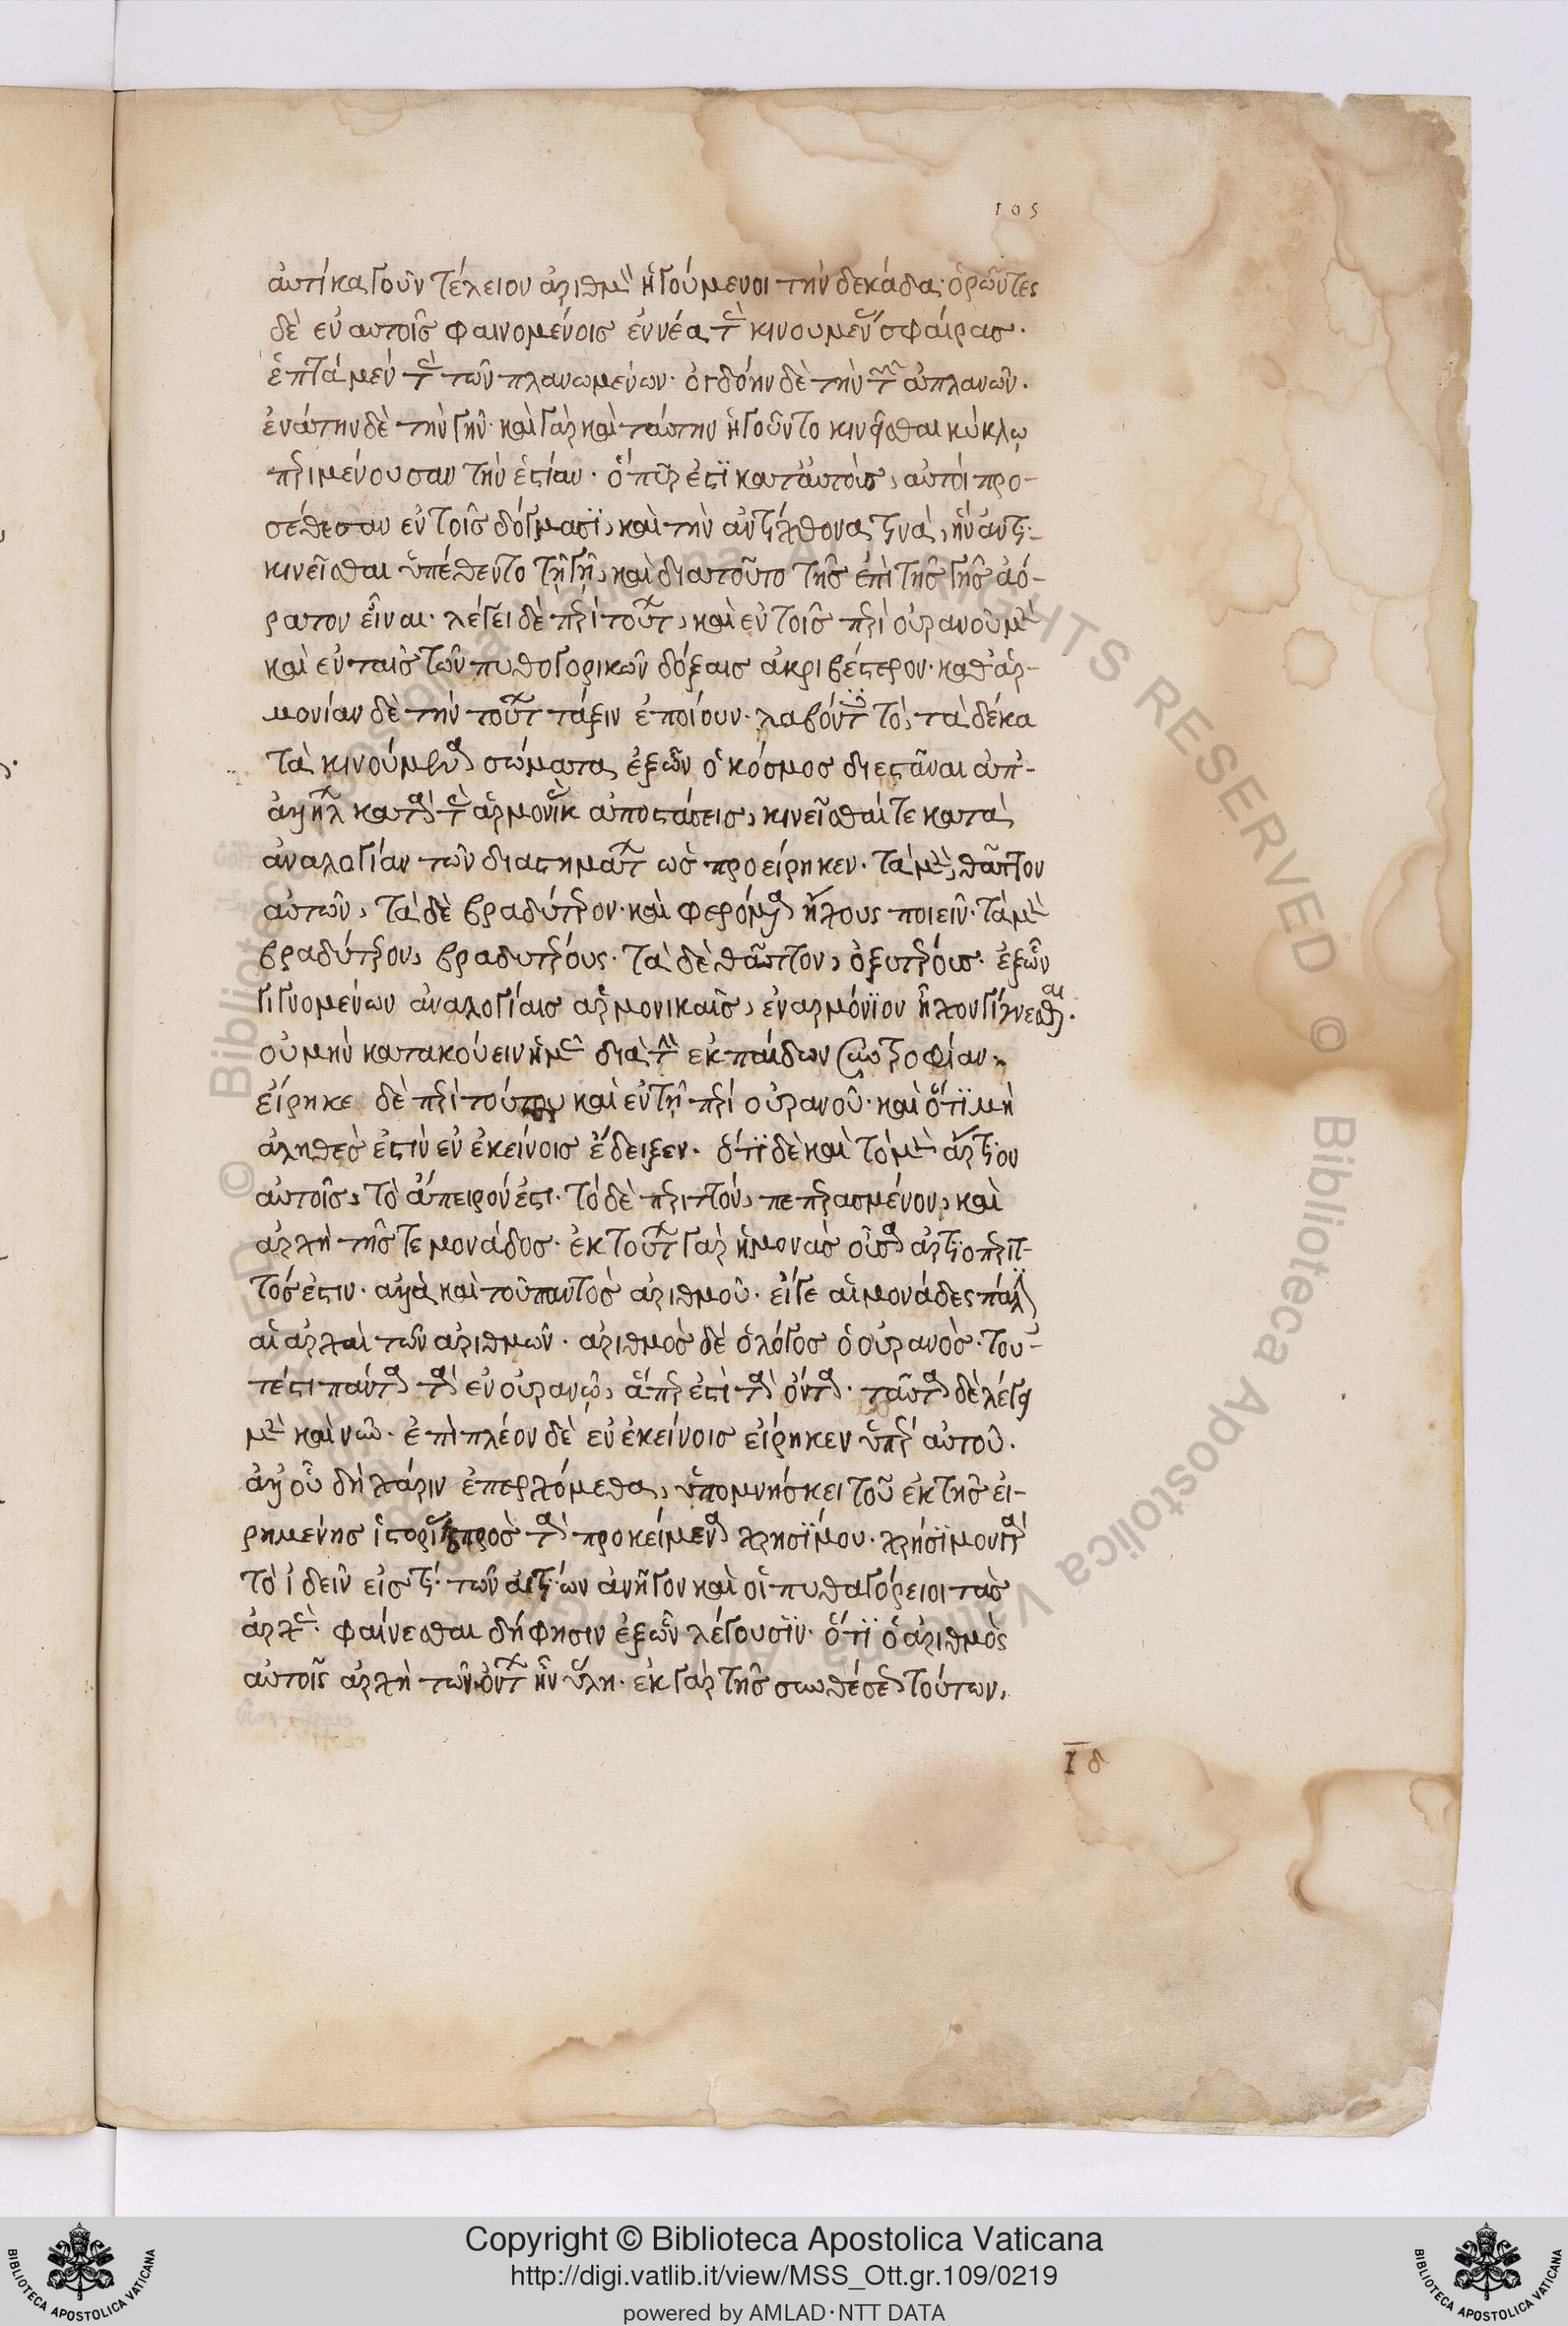 105
αὐτίκα γοῦν τέλειον ἀριθμὸν ἡγούμενοι τὴν δεκάδα· ὁρῶντες
δὲ ἐν αὐτοῖς φαινομένοις ἐννέα τὰς κινουμένας σφαίρας·
ἑπτὰ μὲν τὰς τῶν πλανωμένων· ὀγδόην δὲ τὴν τῶν ἀπλανῶν·
ἐνάτην δὲ τὴν γῆν· καὶ γὰρ καὶ ταύτην ἡγοῦντο κινεῖσθαι κύκλῳ
περὶ μένουσαν τὴν ἑστίαν· ὃ πῦρ ἐστὶ κατ' αὐτοὺς, αὐτοὶ προ-
σέθεσαν ἐν τοῖς δόγμασι, καὶ τὴν ἀντίχθονα τινὰ, ἣν ἀντι-
κινεῖσθαι ὑπέθεντο τῇ γῇ, καὶ διατοῦτο τῆς ἐπὶ τῆς γῆς ἀό-
ρατον εἶναι· λέγει δὲ περὶ τούτων, καὶ ἐν τοῖς περὶ οὐρανοῦ μὲν
καὶ ἐν ταῖς τῶν πυθαγορικῶν δόξαις ἀκριβέστερον· καθ' ἁρ-
μονίαν δὲ τὴν τούτων τάξιν ἐποίουν· λαβόντες τὸ, τὰ δέκα
τὰ κινούμενα σώματα ἐξ ὧν ὁ κόσμος διεστᾶναι ἀπ'-
ἀλλήλων κατὰ τὰς ἁρμονικὰς ἀποστάσεις, κινεῖσθαί τε κατὰ
ἀναλογίαν τῶν διαστημάτων ὡς προείρηκεν· τὰ μὲν, θᾶττον
αὐτῶν, τὰ δὲ βραδύτερον· καὶ φερόμενα ἤχους ποιεῖν· τὰ μὲν
βραδύτερον, βραδυτέρους· τὰ δὲ θᾶττον, ὀξυτέρους· ἐξ ὧν
γιγνομένων ἀναλογίαις ἁρμονικαῖς, ἐναρμόνιον ἦχον γίγνεσθαι·
οὐ μὴν κατακούειν ἡμᾶς διὰ τὴν ἐκ παίδων συντροφίαν·
εἴρηκε δὲ περὶ τούτου καὶ ἐν τῇ περὶ οὐρανοῦ· καὶ ὅτι μὴ
ἀληθές ἐστιν ἐν ἐκείνοις ἔδειξεν· ὅτι δὲ καὶ τὸ μὲν ἄρτιον
αὐτοῖς, τὸ ἄπειρόν ἐστι· τὸ δὲ περιττόν, πεπερασμένον, καὶ
ἀρχὴ τῆς τε μονάδος· ἐκ τούτων γὰρ ἡ μονὰς οὖσα ἀρτιοπέριτ-
τός ἐστιν· ἀλλὰ καὶ τοῦ παντὸς ἀριθμοῦ· εἴγε αἱ μονάδες πάλιν
αἱ ἀρχαὶ τῶν ἀριθμῶν· ἀριθμὸς δὲ ὁ λόγος ὁ οὐρανός· του-
τέστι πάντα τὰ ἐν οὐρανῷ, ἅπερ ἐστὶ τὰ ὄντα· ταῦτα δὲ λέγει
μὲν καὶ νῦν· ἐπὶ πλέον δὲ ἐν ἐκείνοις εἴρηκεν ὑπὲρ αὐτοῦ·
ἀλλ' οὗ δὴ χάριν ἐπερχόμεθα, ὑπομνήσκει τοῦ ἐκ τῆς εἰ-
ρημένης ἱστορίας πρὸς τὰ προκείμενα χρησίμου· χρήσιμον γὰρ
τὸ ἰδεῖν εἰς τί τῶν αἰτίων ἀνῆγον καὶ οἱ πυθαγόρειοι τὰς
ἀρχάς· φαίνεσθαι δή φησιν ἐξ ὧν λέγουσιν· ὅτι ὁ ἀριθμὸς
αὐτοῖς ἀρχὴ τῶν ὄντων ἦν ὕλη· ἐκ γὰρ τῆς συνθέσεως τούτων,
ιδ
Copyright © Biblioteca Apostolica Vaticana
http://digi.vatlib.it/view/MSS_Ott.gr.109/0219
powered by AMLAD·NTT DATA